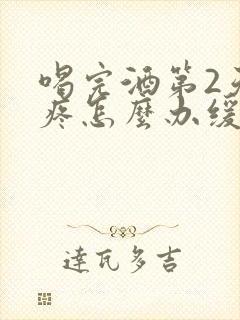 喝完酒第2天
疼怎麼办缓
達瓦多吉